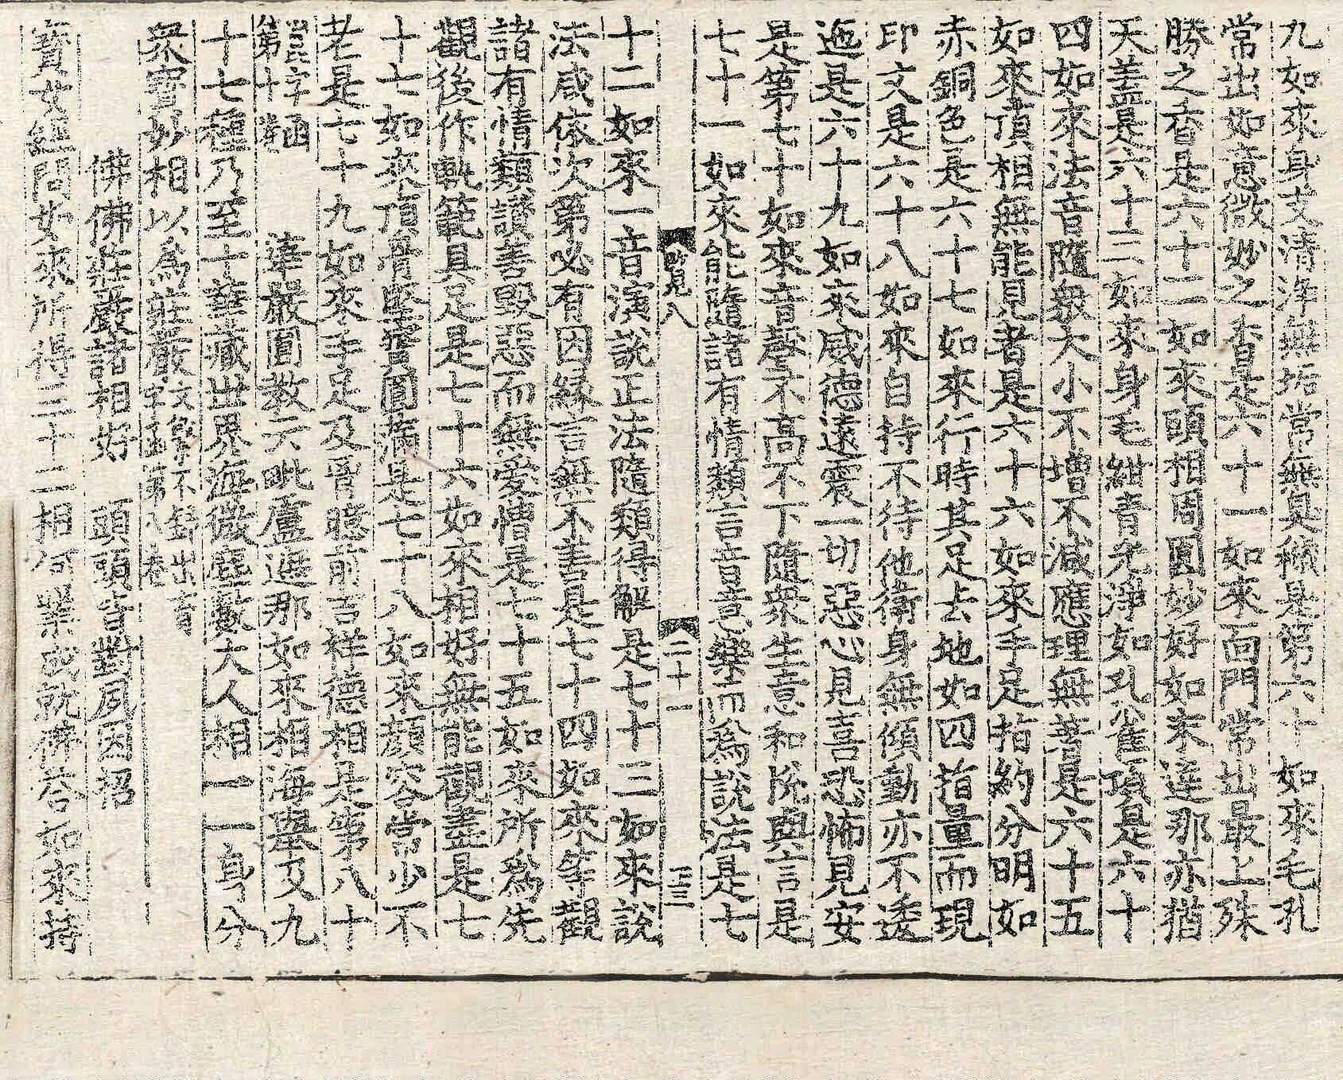 九如來身支清淨無垢常無臭穢是第六十如來毛孔
常出如意微妙之香是六十一如來面門常出最上殊
勝之香是六十二如來頭相周圓妙好如末達那亦猶
天盖是六十三如來身毛紺青光淨如孔雀項是六十
四如來法音隨衆大小不增不減應理無差是六十五
如來頂相無能見者是六十六如來手足指約分明如
赤銅色是六十七如來行時其足去地如四指量而現
印文是六十八如來自持不待他衛身無傾動亦不逶
迤是六十九如來威德遠震一切惡心見喜恐怖見安
是第七十如來音聲不高不下隨衆生意和悅與言是
七十一如來能隨諸有情類言音意樂而爲說法是七
妙見八 二十一 三三
十二如來一音演說正法隨類得解是七十三如來說
法咸依次第必有因緣言無不善是七十四如來等觀
諸有情類讚善毀惡而無愛憎是七十五如來所爲先
觀後作軌範具足是七十六如來相好無能觀盡是七
十七如來頂骨堅實圓滿是七十八如來顔容常少不
老是七十九如來手足及胷臆前吉祥德相是第八十
第十 字函 華嚴圓教云毗盧遮那如來相海舉及九
十七種乃至十華藏世界海微塵數大人相一一身分
衆寶妙相以爲莊嚴文繁不錄出育字函第八卷
佛佛莊嚴諸相好 頭頭皆對夙因招
寶女經問如來所得三十二相何業成就佛答如來持